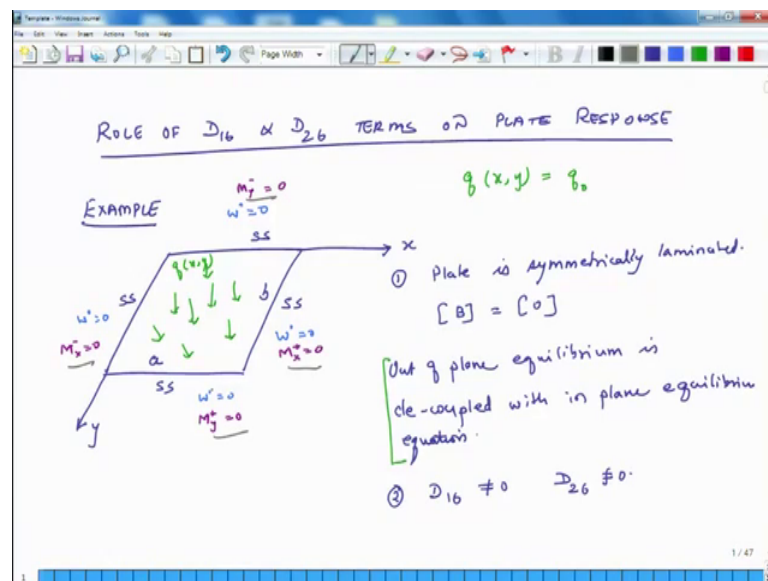 Template - Windows Journal
File Edit View Insert Actions Tools Help
Page Width
B I
ROLE OF D16 & D26 TERMS ON PLATE RESPONSE
q (x,y) = q0
EXAMPLE
My⁻ = 0
w° = 0
SS
x
q(x,y)
b
SS
SS
w° = 0
Mx⁻ = 0
w° = 0
Mx⁺ = 0
a
SS
w° = 0
My⁺ = 0
y
① Plate is symmetrically laminated.
[B] = [0]
Out of plane equilibrium is
de-coupled with in plane equilibrium
equation.
② D16 ≠ 0 D26 ≠ 0.
1 / 47
1